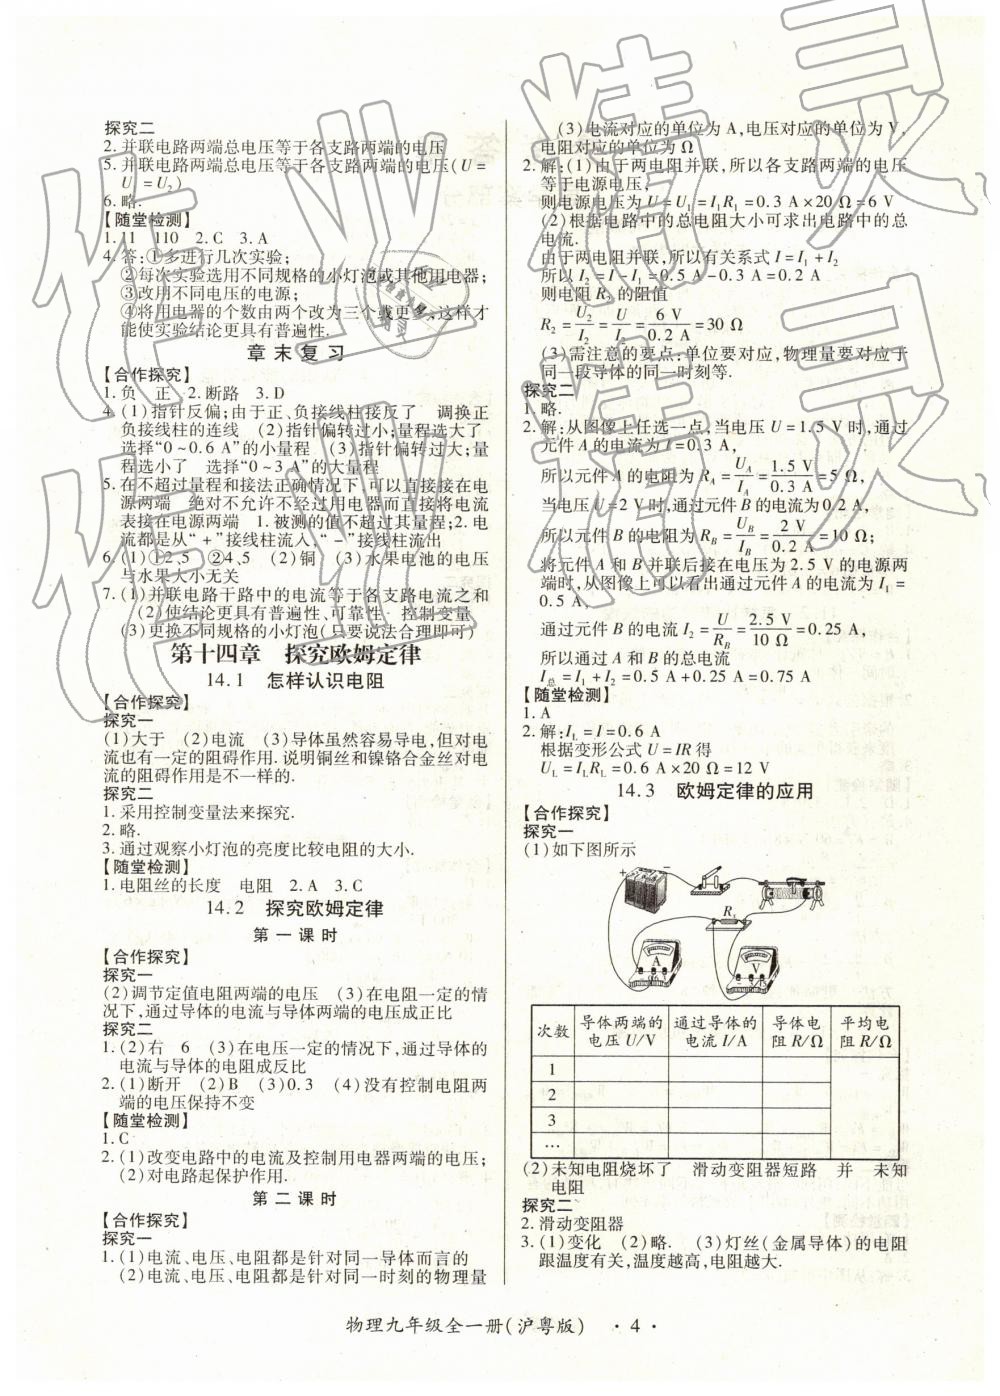 探究二
2. 并联电路两端总电压等于各支路两端的电压
5. 并联电路两端总电压等于各支路两端的电压(U=
U₁=U₂)
6. 略.
【随堂检测】
1. 11 110 2. C 3. A
4. 答:①多进行几次实验;
②每次实验选用不同规格的小灯泡或其他用电器;
③改用不同电压的电源;
④将用电器的个数由两个改为三个或更多,这样才
能使实验结论更具有普遍性.
章末复习
【合作探究】
1. 负 正 2. 断路 3. D
4. (1)指针反偏;由于正、负接线柱接反了 调换正
负接线柱的连线 (2)指针偏转过小;量程选大了
选择“0~0.6 A”的小量程 (3)指针偏转过大;量
程选小了 选择“0~3 A”的大量程
5. 在不超过量程和接法正确情况下,可以直接接在电
源两端 绝对不允许不经过用电器而直接将电流
表接在电源两端 1. 被测的值不超过其量程;2. 电
流都是从“+”接线柱流入,“-”接线柱流出
6. (1)①2、5 ②4、5 (2)铜 (3)水果电池的电压
与水果大小无关
7. (1)并联电路干路中的电流等于各支路电流之和
(2)使结论更具有普遍性、可靠性 控制变量
(3)更换不同规格的小灯泡(只要说法合理即可)
第十四章 探究欧姆定律
14.1 怎样认识电阻
【合作探究】
探究一
(1)大于 (2)电流 (3)导体虽然容易导电,但对电
流也有一定的阻碍作用. 说明铜丝和镍铬合金丝对电
流的阻碍作用是不一样的.
探究二
1. 采用控制变量法来探究.
2. 略.
3. 通过观察小灯泡的亮度比较电阻的大小.
【随堂检测】
1. 电阻丝的长度 电阻 2. A 3. C
14.2 探究欧姆定律
第一课时
【合作探究】
探究一
(2)调节定值电阻两端的电压 (3)在电阻一定的情
况下,通过导体的电流与导体两端的电压成正比
探究二
1. (2)右 6 (3)在电压一定的情况下,通过导体的
电流与导体的电阻成反比
2. (1)断开 (2)B (3)0.3 (4)没有控制电阻两
端的电压保持不变
【随堂检测】
1. C
2. (1)改变电路中的电流及控制用电器两端的电压;
(2)对电路起保护作用.
第二课时
【合作探究】
探究一
1. (1)电流、电压、电阻都是针对同一导体而言的
(2)电流、电压、电阻都是针对同一时刻的物理量
(3)电流对应的单位为 A,电压对应的单位为 V,
电阻对应的单位为 Ω
2. 解:(1)由于两电阻并联,所以各支路两端的电压
等于电源电压,
则电源电压为 U=U₁=I₁R₁=0.3 A×20 Ω=6 V
(2)根据电路中的总电阻大小可求出电路中的总
电流.
由于两电阻并联,所以有关系式 I=I₁+I₂
所以 I₂=I-I₁=0.5 A-0.3 A=0.2 A
则电阻 R₂ 的阻值
R₂=U₂/I₂=U/I₂=6 V/0.2 A=30 Ω
(3)需注意的要点:单位要对应,物理量要对应于
同一段导体的同一时刻等.
探究二
1. 略.
2. 解:从图像上任选一点,当电压 U=1.5 V 时,通过
元件 A 的电流为 I=0.3 A,
所以元件 A 的电阻为 R_A=U_A/I_A=1.5 V/0.3 A=5 Ω,
当电压 U=2 V 时,通过元件 B 的电流为 0.2 A,
所以元件 B 的电阻为 R_B=U_B/I_B=2 V/0.2 A=10 Ω;
将元件 A 和 B 并联后接在电压为 2.5 V 的电源两
端时,从图像上可以看出通过元件 A 的电流为 I₁=
0.5 A,
通过元件 B 的电流 I₂=U/R_B=2.5 V/10 Ω=0.25 A,
所以通过 A 和 B 的总电流
I总=I₁+I₂=0.5 A+0.25 A=0.75 A
【随堂检测】
1. A
2. 解:I_L=I=0.6 A
根据变形公式 U=IR 得
U_L=I_LR_L=0.6 A×20 Ω=12 V
14.3 欧姆定律的应用
【合作探究】
探究一
(1)如下图所示
+ -
Rₓ
A V
次数 导体两端的电压 U/V 通过导体的电流 I/A 导体电阻 R/Ω 平均电阻 R/Ω
1
2
3
…
(2)未知电阻烧坏了 滑动变阻器短路 并 未知
电阻
探究二
2. 滑动变阻器
3. (1)变化 (2)略. (3)灯丝(金属导体)的电阻
跟温度有关,温度越高,电阻越大.
物理九年级全一册(沪粤版) · 4 ·
作业精灵
作业精灵